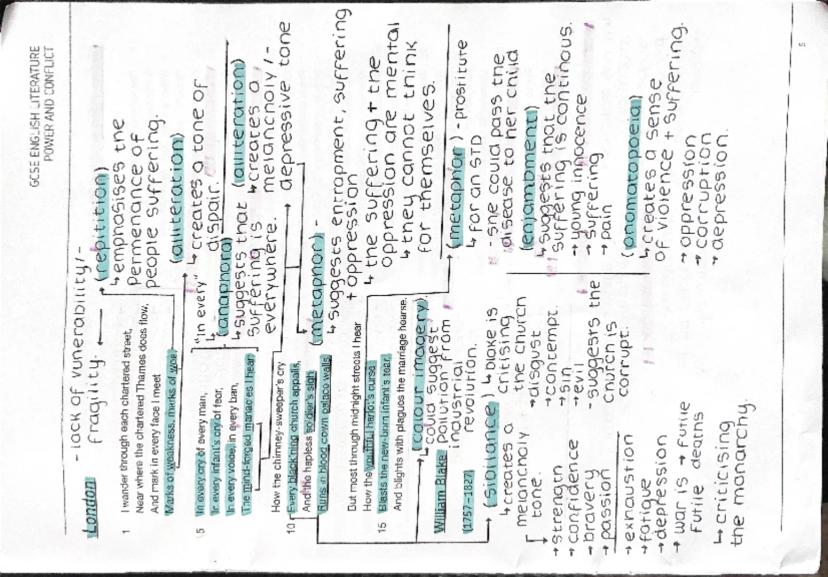 GCSE ENGLISH LITERATURE
POWER AND CONFLICT
London
- lack of vunerability/-
fragility.
(repitition)
↳ emphasises the
permenance of
people suffering.
1 I wander through each chartered street,
Near where the chartered Thames does flow,
And mark in every face I meet
Marks of weakness, marks of woe.
(alliteration)
↳ creates a tone of
despair.
5 In every cry of every man,
In every infant's cry of fear,
In every voice, in every ban,
The mind-forged manacles I hear
"in every"
↳ (anaphora)
↳ suggests that
suffering is
everywhere.
(alliteration)
↳ creates a
melancholy/-
depressive tone
How the chimney-sweeper's cry
10 Every black'ning church appalls,
And the hapless soldier's sigh
Runs in blood down palace walls
(metaphor) -
↳ suggests entrapment, suffering
+ oppression
↳ the suffering + the
oppression are mental
↳ they cannot think
for themselves.
But most through midnight streets I hear
How the youthful harlot's curse
15 Blasts the new-born infant's tear,
And blights with plagues the marriage hearse.
(metaphor) - prostitute
↳ for an STD
- she could pass the
disease to her child
(enjambment)
↳ suggests that the
suffering is continous.
→ young innocence
→ suffering
→ pain
(onomatopoeia)
↳ creates a sense
of violence + suffering.
→ oppression
→ corruption
→ depression.
William Blake
(1757–1827)
(colour imagery)
↳ could suggest
pollution from
industrial
revolution.
↳ blake is
critising
the church
→ disgust
→ contempt.
→ sin
→ evil
- suggests the
church is
corrupt.
(sibilance)
↳ creates a
melancholy
tone.
→ strength
→ confidence
→ bravery
→ passion
→ exhaustion
→ fatigue
→ depression
→ war is → futile
futile deaths
↳ criticising
the monarchy.
5